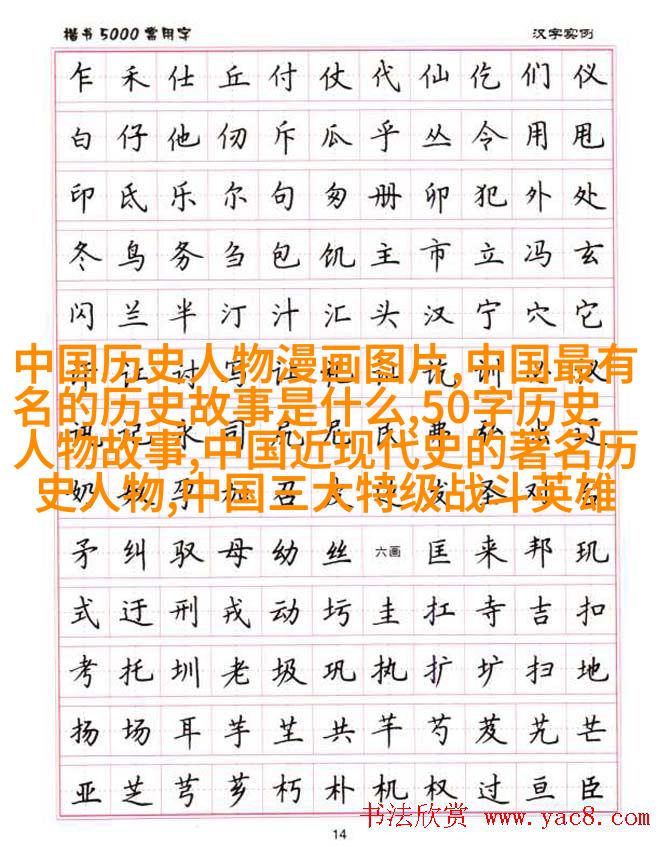 楷书5000常用字 汉字实例
乍 禾 仕 丘 付 仗 代 仙 仡 们 仪
白 仔 他 仞 斥 瓜 乎 丛 令 用 甩
印 氐 乐 尔 句 匆 册 卯 犯 外 处
冬 鸟 务 刍 包 饥 主 市 立 冯 玄
闪 兰 半 汀 汁 汇 头 汉 宁 穴 它
中国历史人物漫画图片,中国最有
名的历史故事是什么,50字历史
人物故事,中国近现代史的著名历
史人物,中国三大特级战斗英雄
矛 纠 驭 母 幼 丝 六画 匡 耒 邦 玑
式 迂 刑 戎 动 圬 圭 扛 寺 吉 扣
考 托 圳 老 圾 巩 执 扩 圹 扫 地
扬 场 耳 芋 芏 共 芊 芍 芨 艽 芒
亚 芝 芎 芗 朽 朴 机 权 过 亘 臣
书法欣赏 www.yac8.com
14